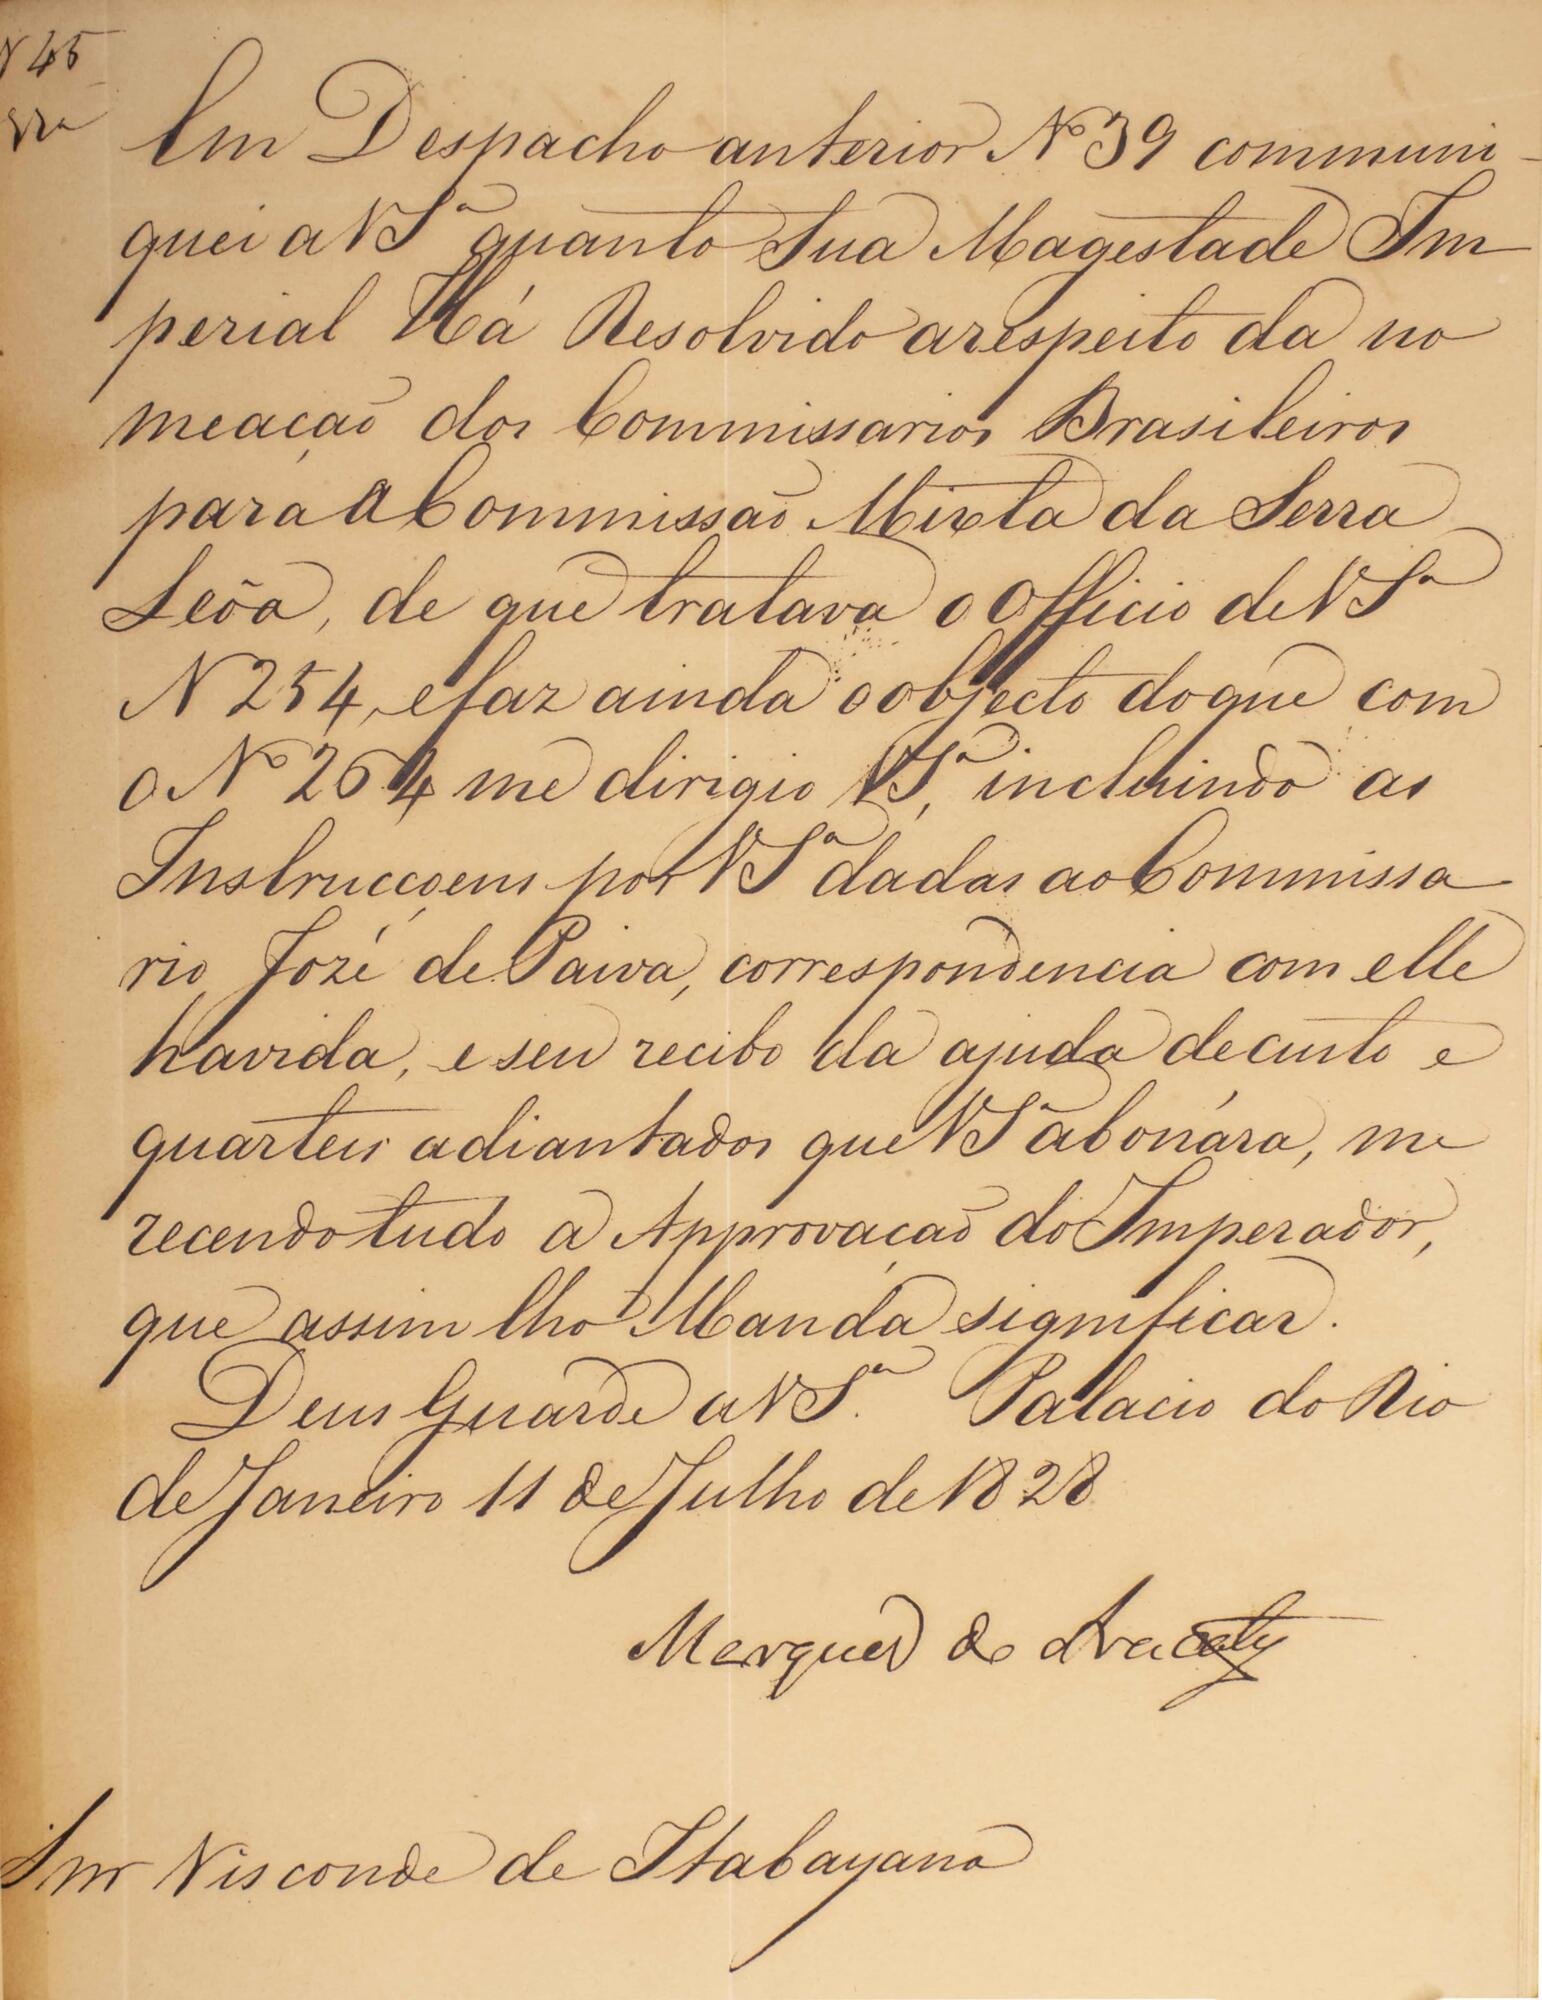 N 45
Em Despacho anterior Nº 39 communi-
quei a V Sª quanto Sua Magestade Im
perial Há Resolvido arespeito da no
meação dos Commissarios Brasileiros
para a Commissão Mixta da Serra
Leôa, de que tratava o Officio de V Sª
N 254, e faz ainda o objecto do que com
o Nº 264 me dirigio V Sª, incluindo as
Instrucçoens por V Sª dadas ao Commissa
rio José de Paiva, correspondencia com elle
havida, e seu recibo da ajuda de custo e
quarteis adiantados que V Sª abonára, me
recendo tudo a Approvação do Imperador,
que assim lho Manda significar.
Deus Guarde a V Sª. Palacio do Rio
de Janeiro 11 de Julho de 1828
Marquez de Aracaty
Snr Visconde de Itabayana